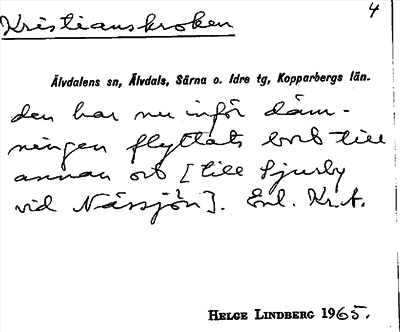 Kristianskroken
4
Älvdalens sn, Älvdals, Särna o. Idre tg, Kopparbergs län.
den har nu inför däm-
ningen flyttats bort till
annan ort [till Ljurby
vid Nässjön]. Enl. Kr.A.
HELGE LINDBERG 1965.